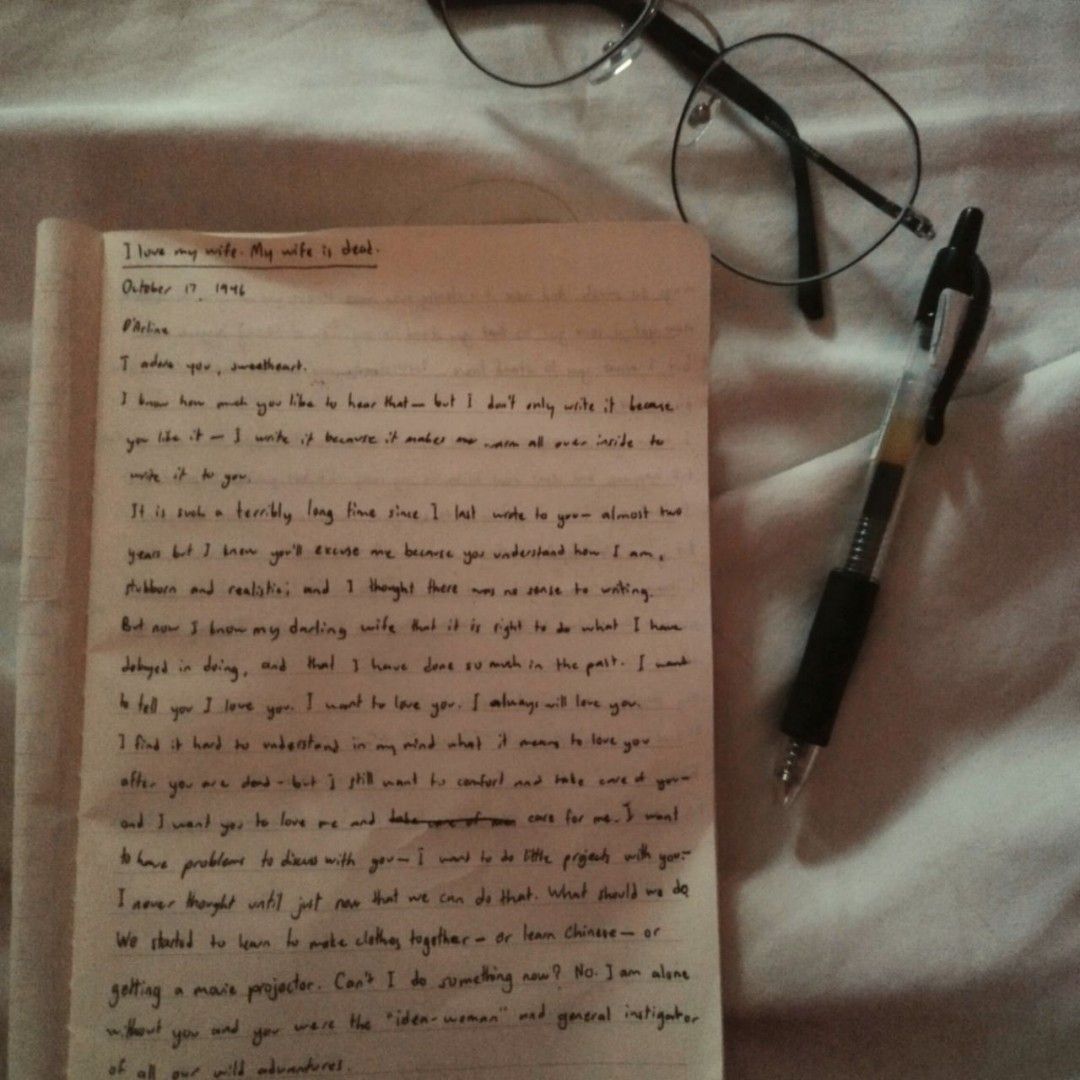 I love my wife. My wife is dead.
October 17, 1946
D'Arline
I adore you, sweetheart.
I know how much you like to hear that — but I don't only write it because
you like it — I write it because it makes me warm all over inside to
write it to you.
It is such a terribly long time since I last wrote to you — almost two
years but I know you'll excuse me because you understand how I am,
stubborn and realistic; and I thought there was no sense to writing.
But now I know my darling wife that it is right to do what I have
delayed in doing, and that I have done so much in the past. I want
to tell you I love you. I want to love you. I always will love you.
I find it hard to understand in my mind what it means to love you
after you are dead - but I still want to comfort and take care of you —
and I want you to love me and care for me. I want
to have problems to discuss with you — I want to do little projects with you.
I never thought until just now that we can do that. What should we do
We started to learn to make clothes together — or learn Chinese — or
getting a movie projector. Can't I do something now? No. I am alone
without you and you were the "idea-woman" and general instigator
of all our wild adventures.